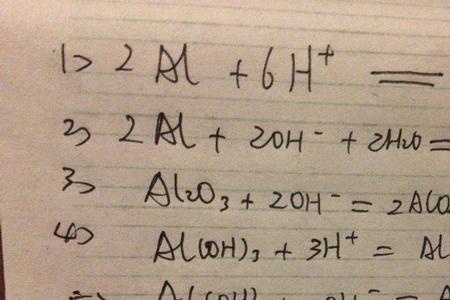 1> 2 Al + 6H⁺ =
2> 2Al + 2OH⁻ + 2H₂O =
3> Al₂O₃ + 2OH⁻ = 2AlO
4> Al(OH)₃ + 3H⁺ = Al